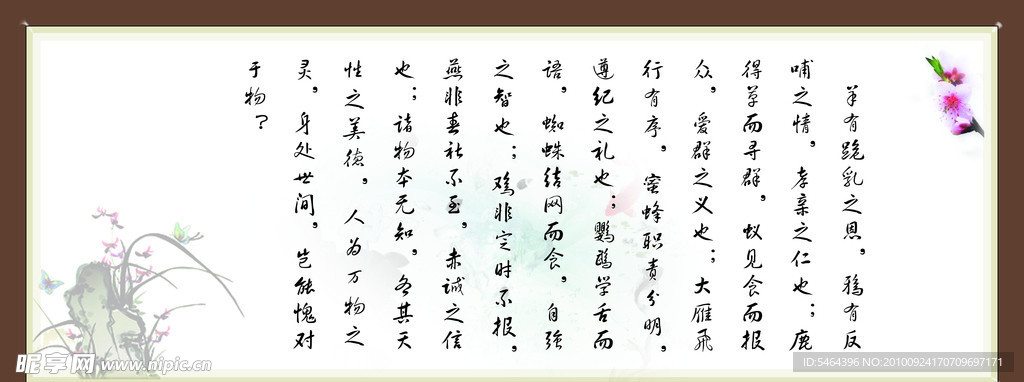 羊有跪乳之恩，鸦有反
哺之情，孝亲之仁也；鹿
得草而寻群，蚁见食而报
众，爱群之义也；大雁飞
行有序，蜜蜂职责分明，
遵纪之礼也；鹦鹉学舌而
语，蜘蛛结网而食，自强
之智也；鸡非定时不报，
燕非春社不至，赤诚之信
也；诸物本无知，各其天
性之美德，人为万物之
灵，身处世间，岂能愧对
于物？
昵享网 www.nipic.cn
ID:5464396 NO:20100924170709697171